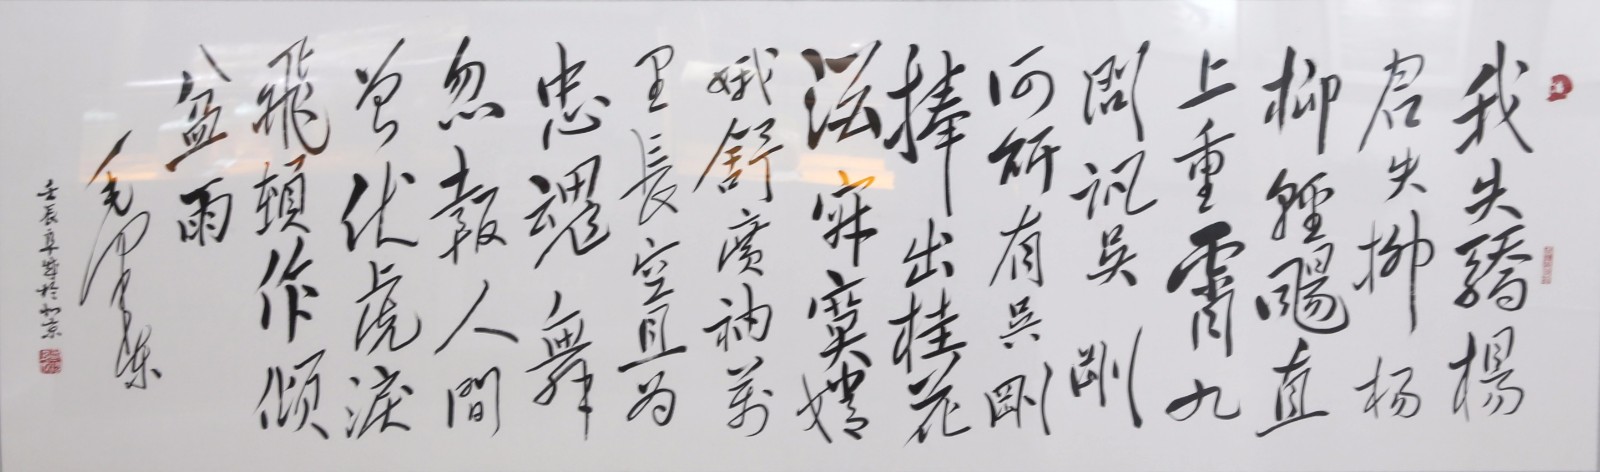 我失驕楊
君失柳杨
柳輕颺直
上重霄九
問訊吳剛
何所有吳剛
捧出桂花
酒寂寞嫦
娥舒廣袖萬
里長空且为
忠魂舞
忽報人間
曾伏虎淚
飛頓作傾
盆雨
毛泽东
壬辰年於北京